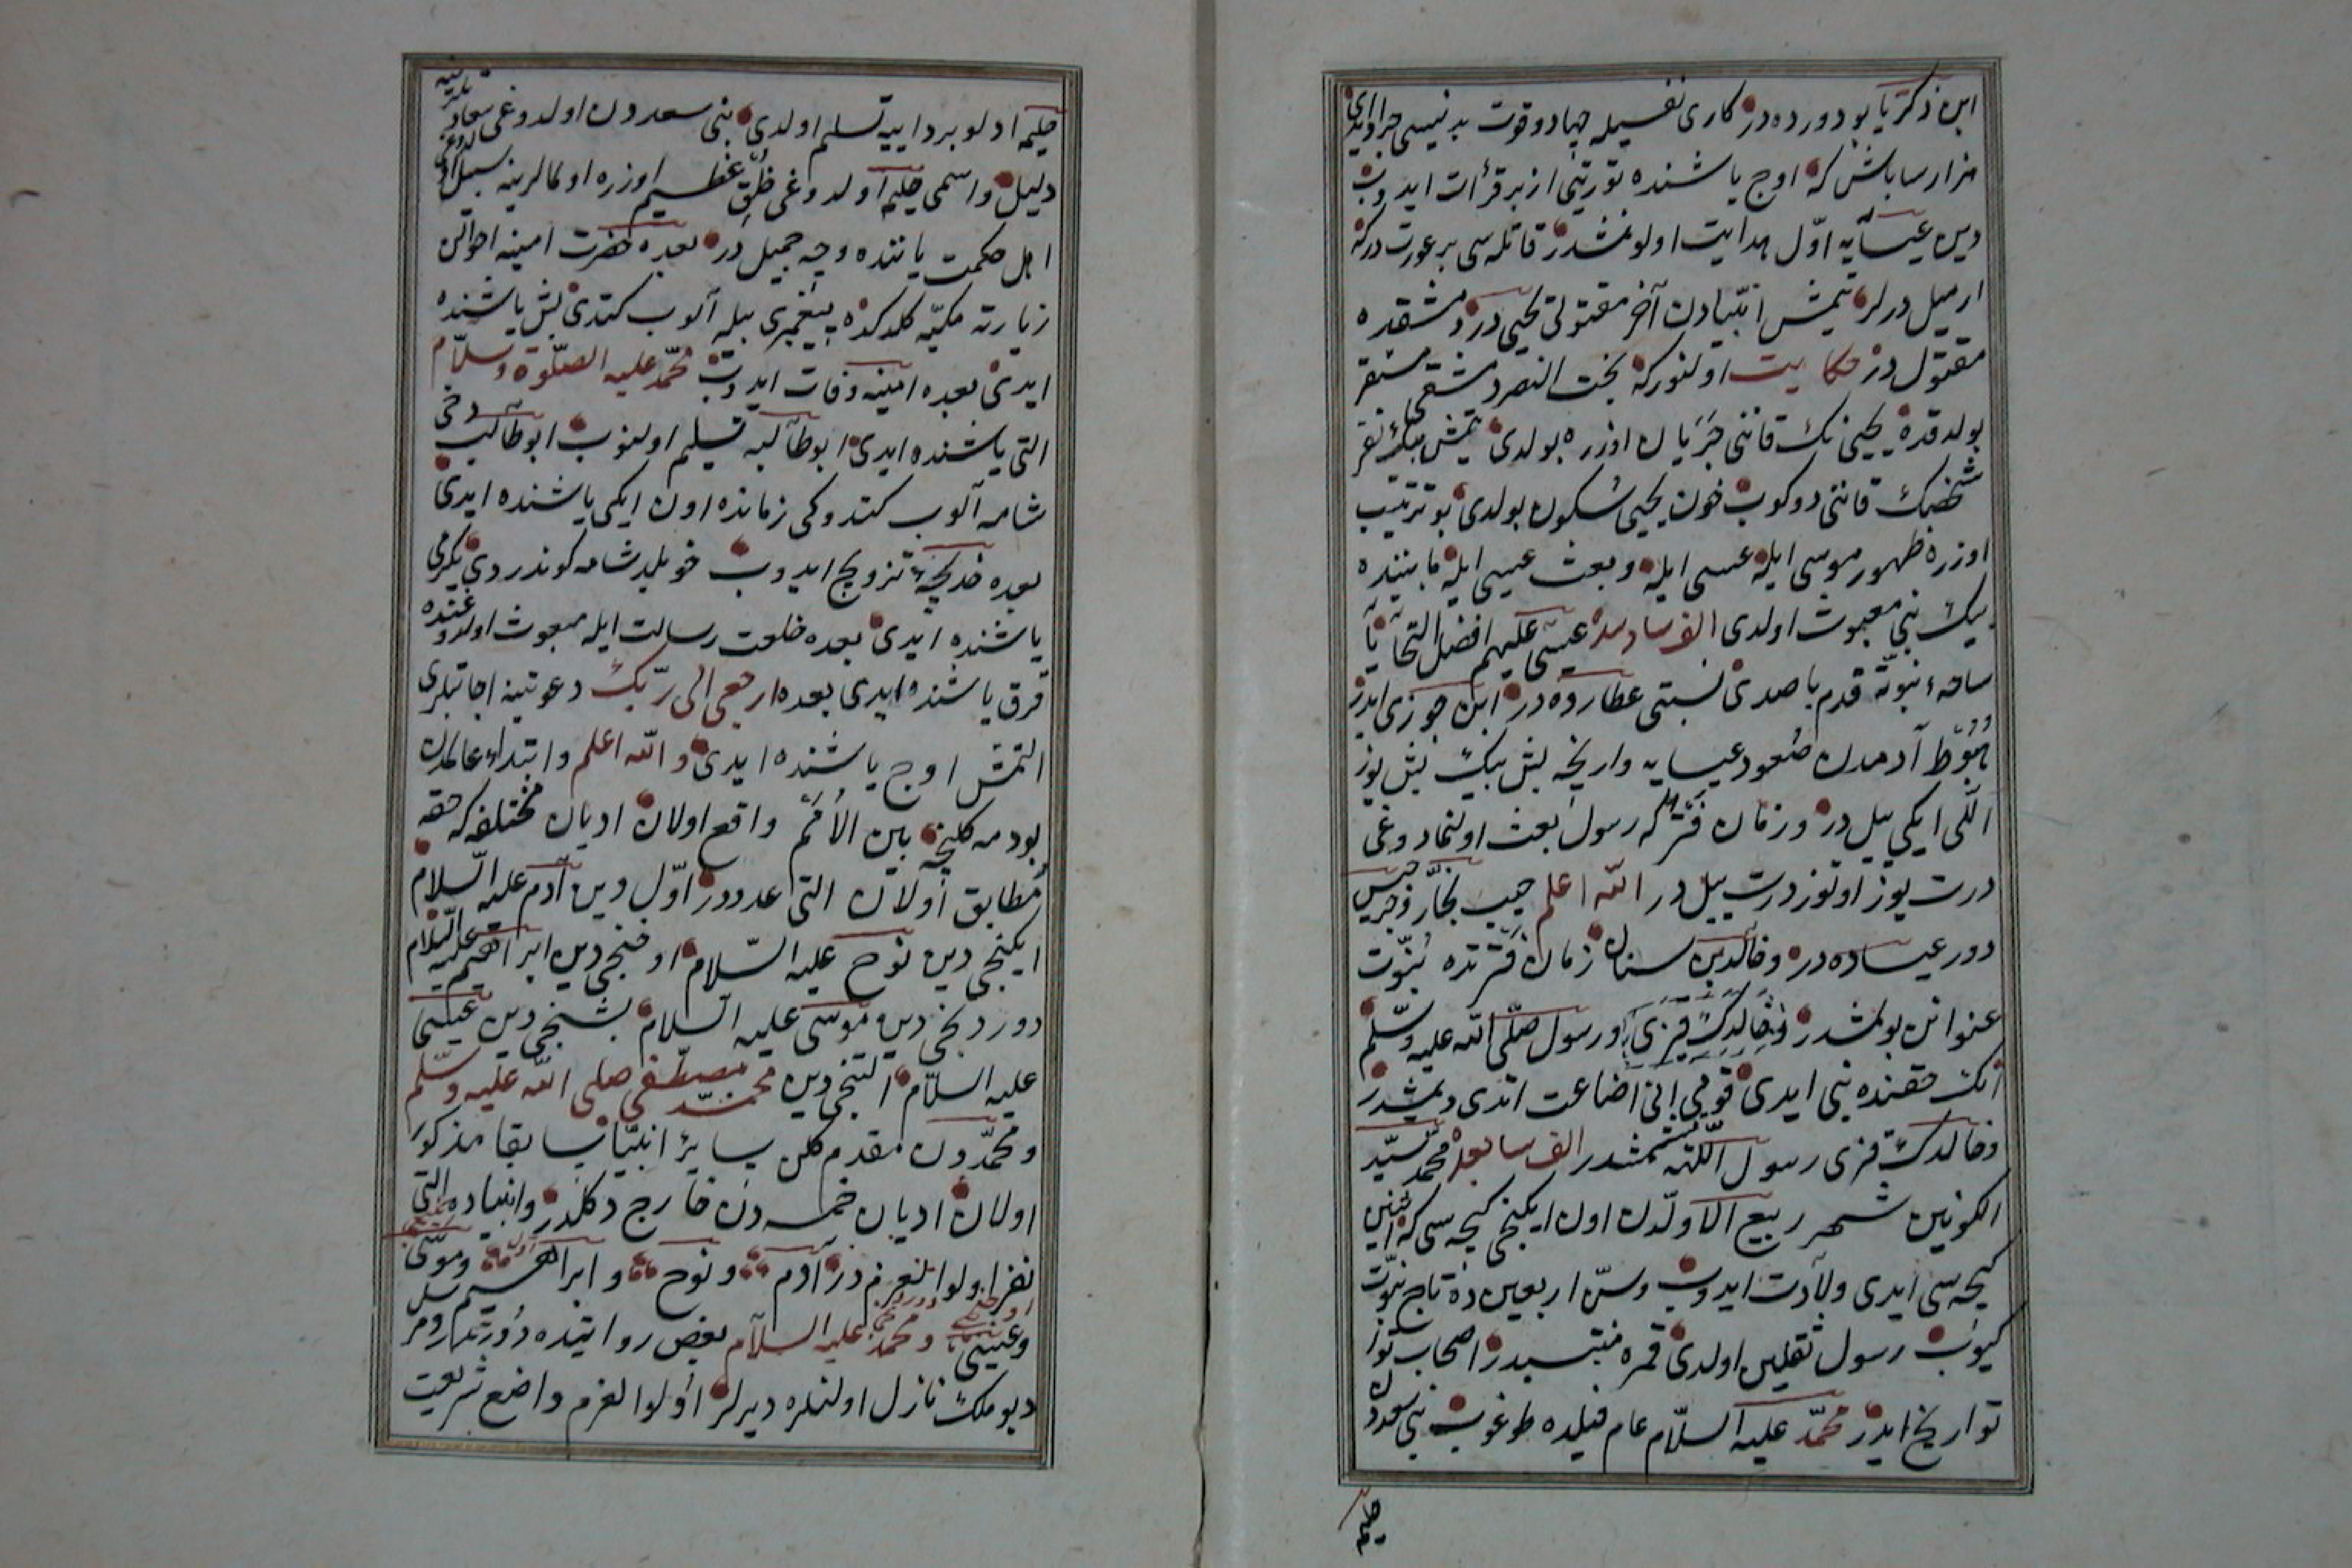 ابن ذكريا بو دورده در كارى نفسيله جهاد وقوت بدنيسى جراد ايدى
هزار ساباش كه اوچ ياشنده توريتى ازبر قرأت ايدوب
دين عيسايه اوّل هدايت اولونمشدر قاتله سى بر عورت در كه
ارميل درلر يتمش انبيادن آخر مقتولى يحيى در دمشقده
مقتول در حكايت اولنور كه بخت النصر دمشقى مسقر
بولدقده يحيى نك قاننى جَرَيان اوزره بولدى يتمش بيك نفر
شخصك قاننى دوكوب خون يحيى سكون بولدى بو ترتيب
اوزره ظهور موسى ايله عيسى ايله وبعث عيسى ايله مابيننده
بيك نبى مبعوث اولدى الف سادسده عيسى عليهم افضل التحايا
ساحهء نبوّته قدم باصدى نسبتى عطارده در ابن جوزى ايدر
هبوط آدمدن صعود عيسايه وارنجه بش بيك بش يوز
اللى ايكى ييل در وزمان فترتكه رسول بعث اولنمادوغى
درت يوز اوتوز درت ييل در اللّه اعلم حبيب نجّار وجرجيس
دور عيساده در وخالد بن سنان زمان فترتده نبوّت
عنوانن بولمشدر وخالدك قيزى ورسول صلّى اللّه عليه وسلّم
آنك حقنده نبى ايدى قومى انى اضاعت اتدى ديمشدر
وخالدك قزى رسول اللّهه يتمشدر الف سابعده محمّد سيّد
الكونين شهر ربيع الاولدن اون ايكنجى كيجه سى كه اثنين
كيجه سى ايدى ولادت ايدوب وسنّ اربعين ده تاج نبوّت
كيوب رسول ثقلين اولدى قمره منتسبدر اصحاب تواريخ
تواريخ ايدر محمّد عليه السلام عام فيلده طوغوب بنى سعددن
حليمه
حليمه ادلو بر دايه يه تسليم اولدى بنى سعددن اولدوغى سعادتلريه
دليل واسمى حليم اولدوغى خلق عظيم اوزره اولمالرينه سبيل اولدوغى
اهل حكمت ياننده وجه جميل در بعده حضرت امينه اخوالن
زيارته مكيّه كلدكده پيغمبرى بيله آلوب كتدى بش ياشنده
ايدى بعده امينه وفات ايدوب محمّد عليه الصلوة وسلّام
التى ياشنده ايدى ابوطالبه تسليم اولنوب ابوطالب دخى
شامه آلوب كتدوكى زمانده اون ايكى ياشنده ايدى
بعده خديجه ء تزويج ايدوب خويلد شامه كوندردى يكرمى
ياشنده ايدى بعده خلعت رسالت ايله مبعوث اولدوغنده
قرق ياشنده ايدى بعده ارجعى الى ربّك دعوتينه اجابتلرى
التمش اوچ ياشنده ايدى واللّه اعلم وابتداء عالمدن
بودمه كلنجه بين الأمم واقع اولان اديان مختلفه كه حقه
مطابق اولان التى عدددر اوّل دين آدم عليه السلام
ايكنجى دين نوح عليه السّلام اوچنجى دين ابراهيم عليه السّلام
دوردنجى دين موسى عليه السلام بشنجى دين عيسى
عليه السلام التنجى دين محمّد مصطفى صلى اللّه عليه وسلّم
ومحمّددن مقدم كلن ساير انبيا سابقا مذكور
اولان اديان خمسه دن خارج دكلدر وانبياده التى
نفر اولوالعزم در آدم ونوح وابراهيم وموسى
وعيسى ومحمّد عليه السلام بعض روايتده دورتدر
ديو ملك نازل اولنلره ديرلر اولوا العزم واضع شريعت